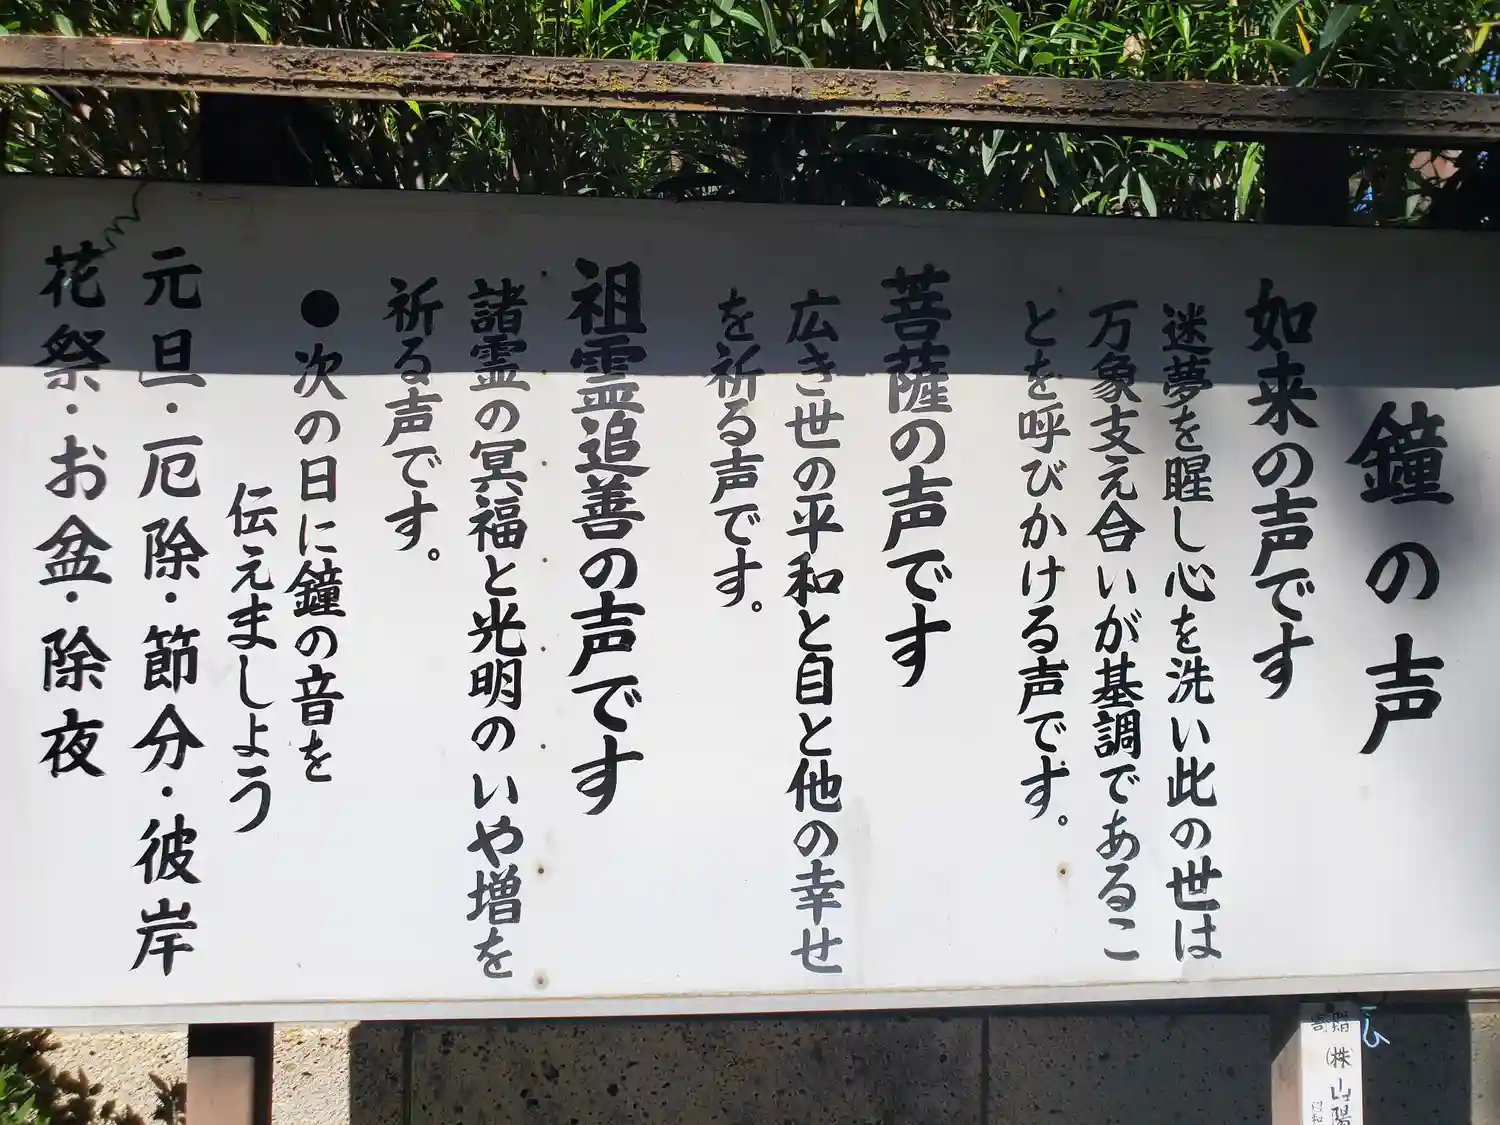 鐘の声
如来の声です
迷夢を醒し心を洗い此の世は
万象支え合いが基調であるこ
とを呼びかける声です。
菩薩の声です
広き世の平和と自と他の幸せ
を祈る声です。
祖霊追善の声です
諸霊の冥福と光明のいや増を
祈る声です。
●次の日に鐘の音を
伝えましょう
元旦・厄除・節分・彼岸
花祭・お盆・除夜
寄贈
(株)山陽